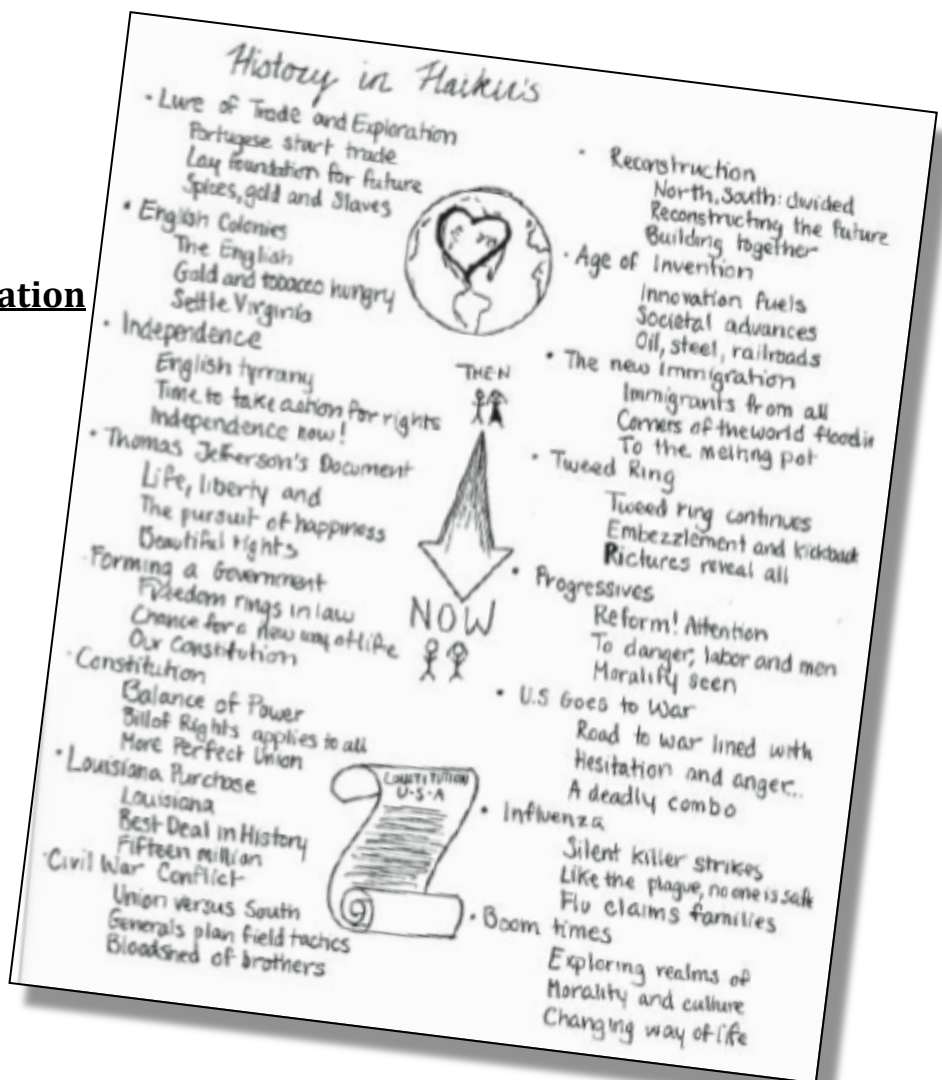 ation
History in Haiku's
· Lure of Trade and Exploration
Portugese start trade
Lay foundation for future
Spices, gold and Slaves
· English Colonies
The English
Gold and tobacco hungry
Settle Virginia
· Independence
English tyrrany
Time to take action for rights
Independence now!
· Thomas Jefferson's Document
Life, liberty and
The pursuit of happiness
Beautiful rights
· Forming a Government
Freedom rings in law
Chance for a new way of life
Our Constitution
· Constitution
Balance of Power
Bill of Rights applies to all
More Perfect Union
· Louisiana Purchase
Louisiana
Best Deal in History
Fifteen million
· Civil War Conflict
Union versus South
Generals plan field tactics
Bloodshed of brothers
THEN
NOW
CONSTITUTION
U·S·A
· Reconstruction
North, South: divided
Reconstructing the future
Building together
· Age of Invention
Innovation fuels
Societal advances
Oil, steel, railroads
· The new Immigration
Immigrants from all
Corners of the world flood in
To the melting pot
· Tweed Ring
Tweed ring continues
Embezzlement and kickback
Pictures reveal all
· Progressives
Reform! Attention
To danger, labor and men
Morality seen
· U.S Goes to War
Road to war lined with
Hesitation and anger..
A deadly combo
· Influenza
Silent killer strikes
Like the plague, no one is safe
Flu claims families
· Boom times
Exploring realms of
Morality and culture
Changing way of life